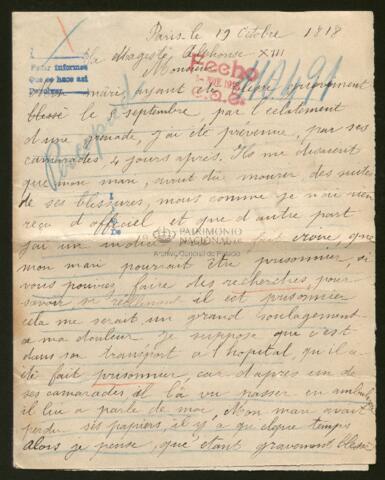 Paris le 19 Octobre 1818
Sa Magesté Alphonse XIII
Monsieur
Pedir informes
Que se hace así
Devolver
Hecho
mari ayant été
blessé le 2 septembre, par l'éclatement
d'une grenade, j'ai été prévenue, par ses
camarades 4 jours après. Ils me disaient
que mon mari, avait dû mourrir des suites
de ses blessures, nous comme je n'ai rien
reçu d'officiel et que d'autre part
j'ai un indice croire que
PATRIMONIO
NACIONAL
Archivo General de Palacio
mon mari pourrait être prisonnier, si
vous pouvez faire des recherches, pour
savoir si réellement il est prisonnier
cela me serait un grand soulagement
a ma douleur. Je suppose que c'est
dans son transport a l'hopital, qu'il a
été fait prisonnier car d'après un de
ses camarades il l'a vu passer en
il lui a parlé de moi, Mon mari avait
perdu ses papiers, il y a quelque temps
alors je pense, que étant gravement blessé